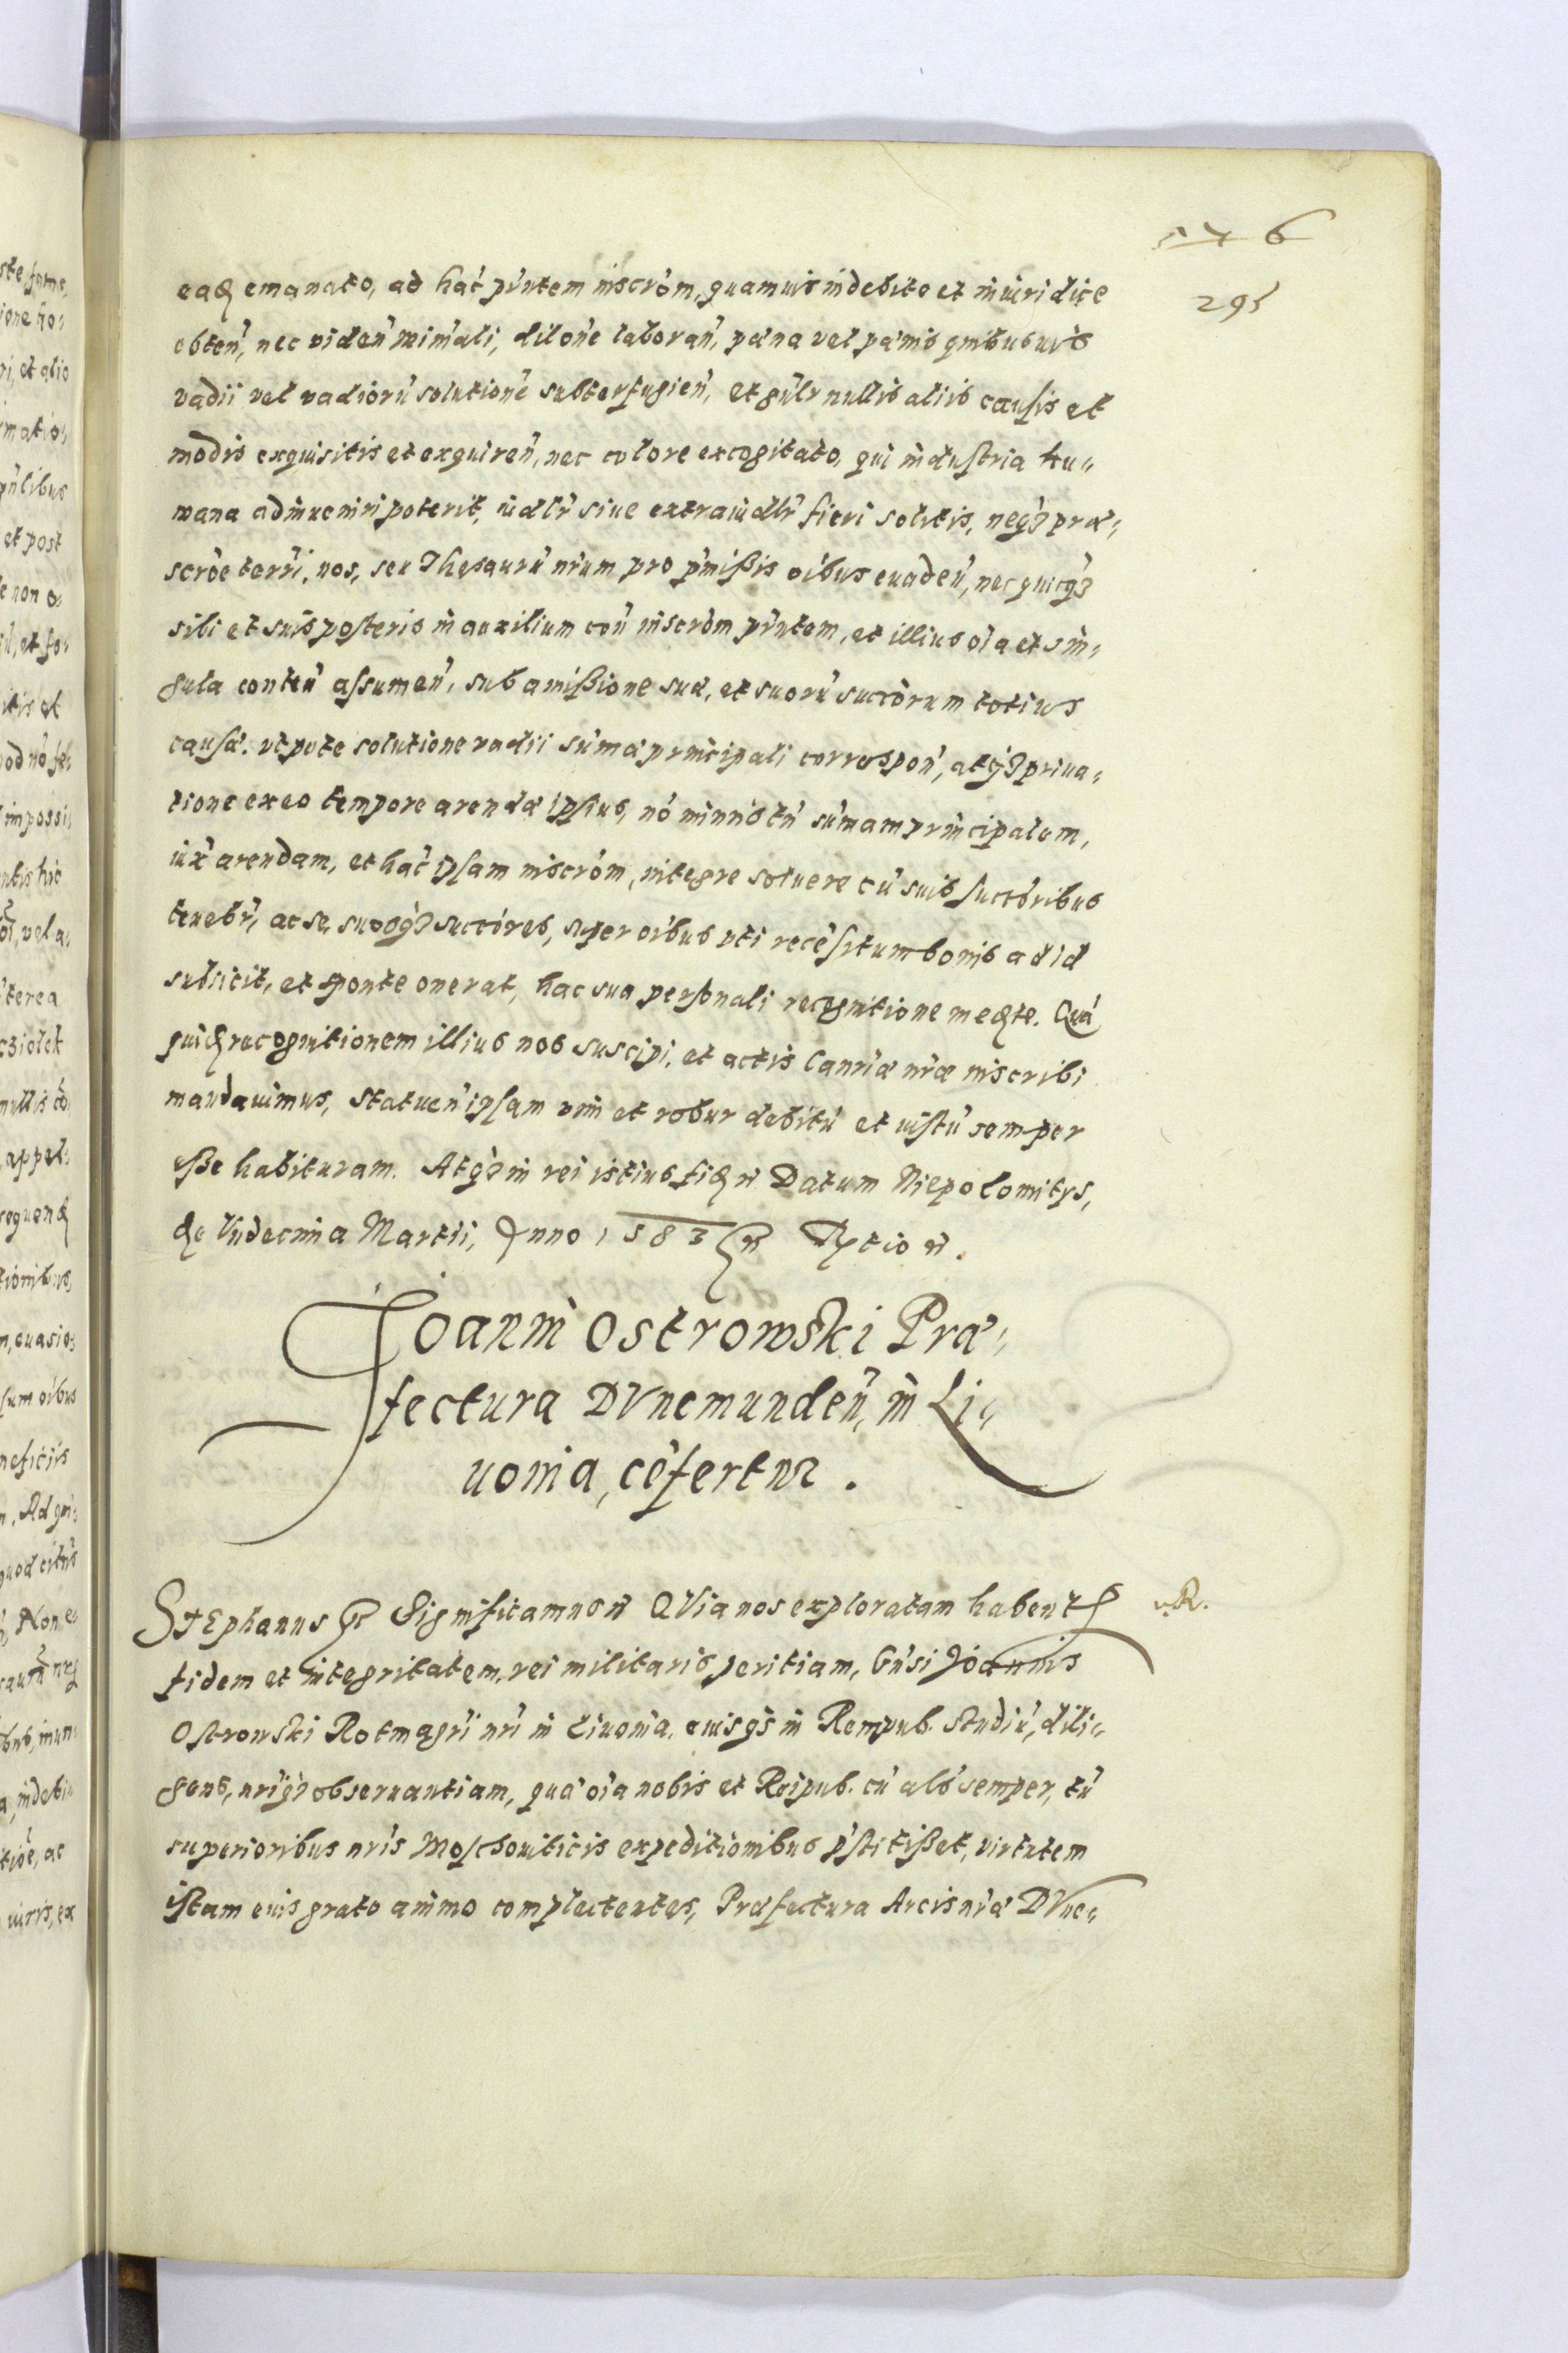 176
295
eaꝗ emanato, ad hac̃ pn̄tem inscr̃om, quamuis indebite et iniuridice
obten̄, nec viden̄ minali, dilõne laboran̄, pæna vel pænis quibusuis
vadii vel vadiorũ solutionẽ subterfugien̄, et gñlr nullis aliis causis et
modis exquisitis et exquiren̄, nec colore excogitato, qui industria hu-
mana adinueniri poterit, iudlr̃ siue extraiudlr̃ fieri solitis, neqȝ præ-
scr̃oe terrĩ, nos, seu Thesaurũ nr̃um pro p̃missis oĩbus euaden̄, nec quicqȝ
sibi et suis posteris in auxilium con̄ inscr̃om pn̄tem, et illius oĩa et sin-
gula conten̄ assumen̄, sub amissione suæ, et suorũ succõrum totius
causæ. vtpote solutione vadii sum̃æ principali correspon̄, atqȝ priua-
tione ex eo tempore arendæ ipsius, nõ minus tñ sum̃am principalem,
iux̃ arendam, et hac̃ ipsam inscr̃om, integre soluere cũ suis succõribus
tenebr̃, ac se, suosqȝ succõres, super oĩbus vti recẽsitum bonis ad id
subiicit, et sponte onerat, hac sua personali recognitione meꝗte. Quã
quiꝗ recognitionem illius nos suscipi, et actis Canr̃iæ nr̃æ inscribi
mandauimus, statuen̄ ipsam vim et robur debitũ et iustũ semper
esse habituram. Atqȝ in rei istius fiꝗ ñ Datum Niepolomitys,
die Vndecima Martii, Anno 1583 ꝛc̃
Ioanni Ostrowski Præ-
fectura DVnemunden̄, in Li-
uonia, cõfertur.
STEphanus ꝛc̃ Significamus ñ QVia nos exploratam habentes
R.
fidem et integritatem, rei militaris peritiam, Gñsi Joannis
Ostrowski Rotmagr̃i nr̃i in Liuonia, eiusqȝ in Rempub. studiũ, dili-
gens, nr̃iqȝ obseruantiam, quæ oĩa nobis et Reipub. cũ als semper, tũ
superioribus nr̃is Moschouiticis expeditionibus p̃stitisset, virtutem
istam eius grato animo complectentes, Præfectura Arcis nr̃æ DVne-